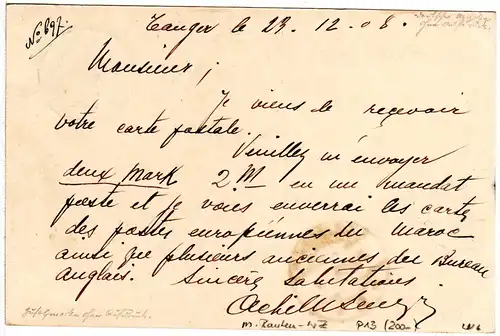 No 697.
Tanger le 23. 12. 08.
Monsieur ;
Je viens de reçevoir
votre carte postale.
Veuillez m'envoyer
deux Mark 2 M en un mandat
poste et je vous enverrai les cartes
des postes européennes du Maroc
ainsi que plusieurs anciennes des Bureau
Anglais. Sincères Salutations.
P13